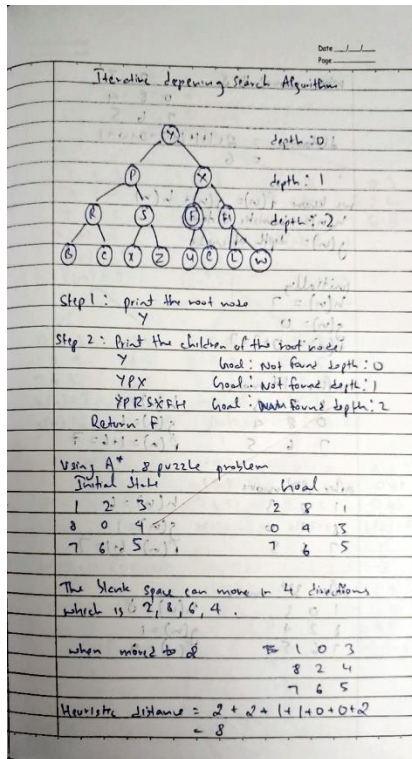 Date __/__/__
Page ______
Iterative depening Search Algorithm
Y depth: 0
P X depth: 1
R S F H depth: 2
B C X Z U C L W
Step 1: print the root node
Y
Step 2: Print the children of the root node:
Y Goal: Not found depth: 0
Y P X Goal: Not found depth: 1
Y P R S X F H Goal: Found depth: 2
Return (F)
Using A*, 8 puzzle problem
Initial State Goal
1 2 3 2 8 1
8 0 4 0 4 3
7 6 5 7 6 5
The blank space can move in 4 directions
which is 2, 8, 6, 4.
when moved to 2 1 0 3
8 2 4
7 6 5
Heuristic distance = 2 + 2 + 1 + 1 + 0 + 0 + 2
= 8